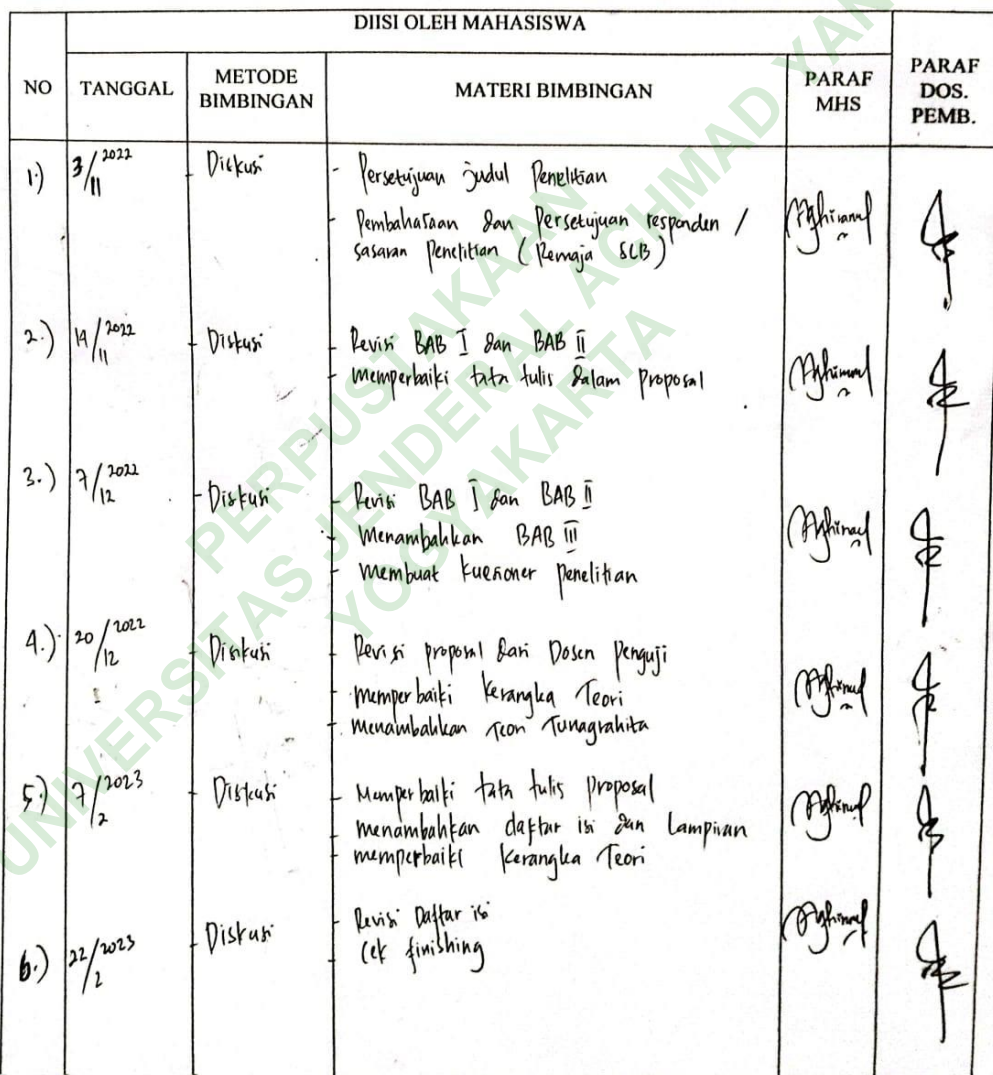 DIISI OLEH MAHASISWA
NO TANGGAL METODE BIMBINGAN MATERI BIMBINGAN PARAF MHS PARAF DOS. PEMB.
1.) 3/11 2022 - Diskusi - Persetujuan judul Penelitian
- Pembahasaan dan Persetujuan responden /
sasaran Penelitian (Remaja SLB)
2.) 14/11 2022 - Diskusi - Revisi BAB I dan BAB II
- memperbaiki tata tulis dalam proposal
3.) 7/12 2022 - Diskusi - Revisi BAB I dan BAB II
- Menambahkan BAB III
- membuat kuesioner penelitian
4.) 20/12 2022 - Diskusi - Revisi proposal dari Dosen Penguji
- memperbaiki Kerangka Teori
- menambahkan Teori Tunagrahita
5.) 7/2 2023 - Diskusi - Memperbaiki tata tulis proposal
- menambahkan daftar isi dan Lampiran
- memperbaiki Kerangka Teori
6.) 22/2 2023 - Diskusi - Revisi Daftar isi
- Cek finishing
PERPUSTAKAAN
UNIVERSITAS JENDERAL ACHMAD YAN
YOGYAKARTA